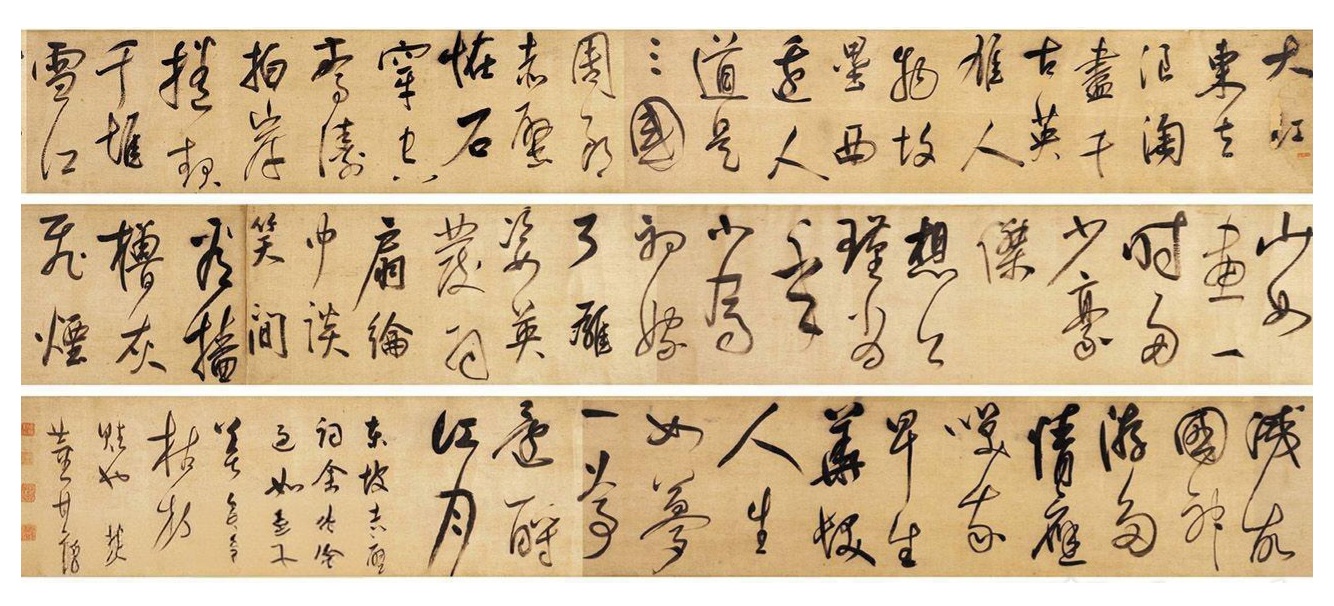 大江
東去
浪淘
盡千
古英
雄人
物故
壘西
邊人
道是
三國
周郎
赤壁
怪石
穿空
驚濤
拍岸
捲起
千堆
雪江
山如
畫一
時多
少豪
傑
想公
瑾當
年
小喬
初嫁
了雄
姿英
發羽
扇綸
巾談
笑間
看檣
櫓灰
飛煙
滅故
國神
遊多
情應
笑我
早生
華髮
人生
如夢
一尊
還酹
江月
東坡赤壁
詞余
枯樹
賦也
董其昌